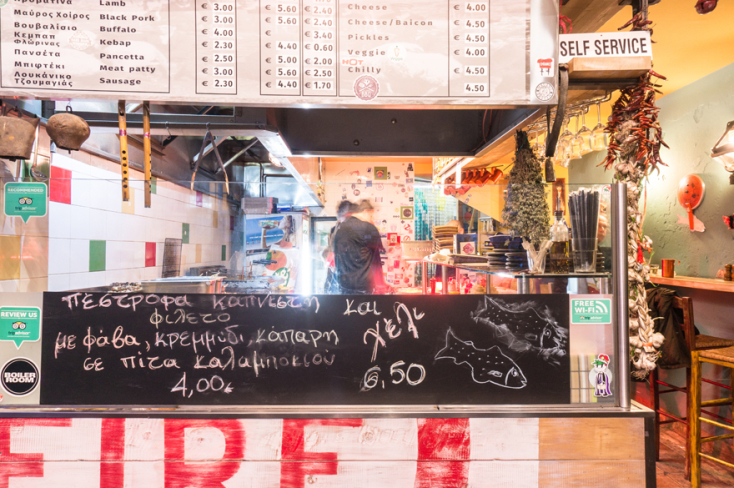 Lamb € 5.60 € 3.60 Cheese € 4.00
Μαύρος Χοίρος Black Pork € 3.00 € 5.60 € 3.60 Cheese/Baicon € 4.50
Βουβαλίσιο Buffalo € 4.00
Κεμπαπ Φλώρινας Kebap € 2.30 € 4.40 € 3.40 Pickles € 4.50
Πανσέτα Pancetta € 2.50 € 5.00 Veggie € 4.00
Μπιφτέκι Meat patty € 3.00 € 5.60 HOT Chilly € 4.50
Λουκάνικο Τζουμαγιάς Sausage € 2.30 € 4.40 € 1.70 € 4.50
SELF SERVICE
REVIEW US
FREE WI-FI
BOILER ROOM
πέστροφα καπνιστή και
φιλέτο χέλι
με φάβα, κρεμμύδι, κάπαρη
σε πίτα καλαμποκιού
4,00€ 6,50
FIRE